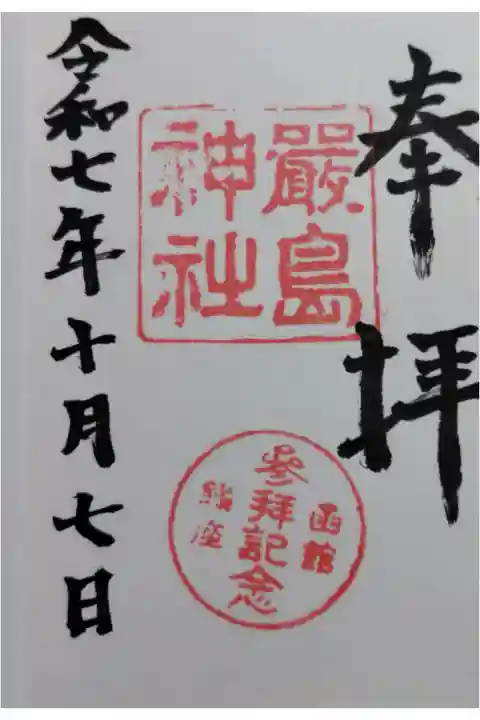 奉拝
嚴島
神社
函館
參拜記念
鎮座
令和七年十月七日